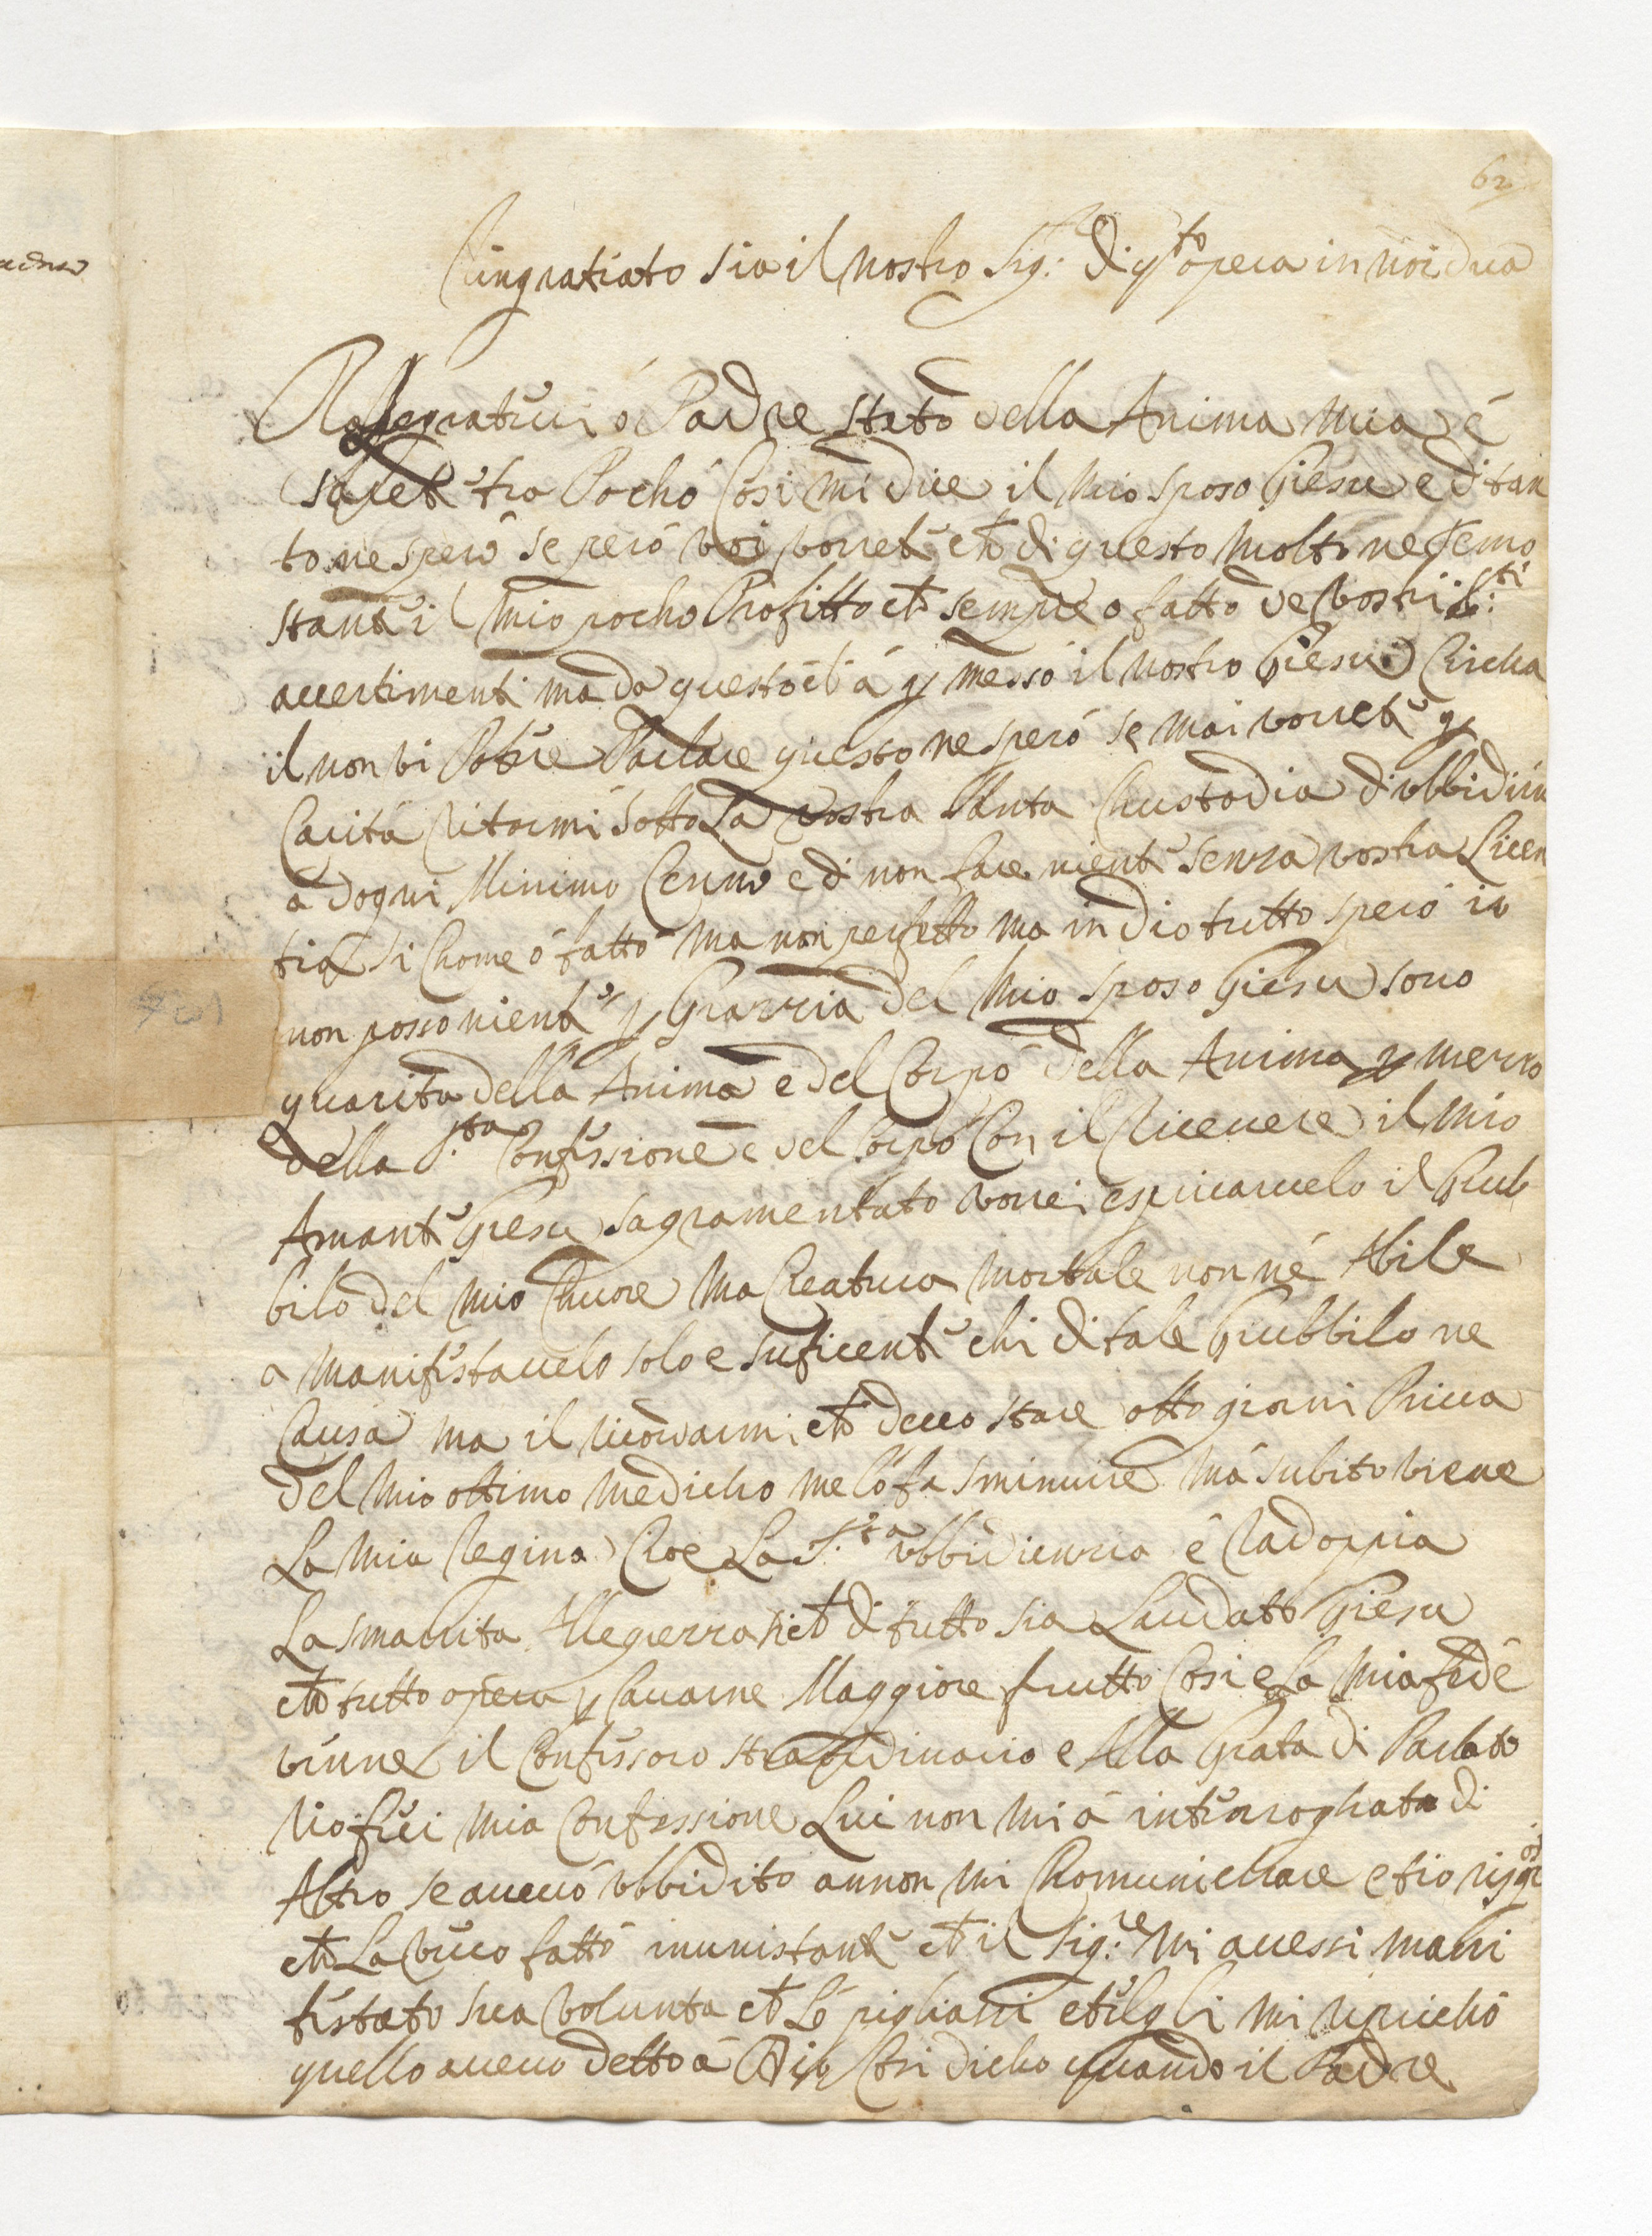 62
adno
Ringratiato sia il nostro Sig: di qto opera in noi dua
Rallegratevi ó Padre stato della Anima Mia é
sarete fra Pocho Cosi mi dice il Mio sposo Giesu e di tan
to ne spero se peró voi vorrete ch di questo molto ne temo
stante il Mio pocho Profitto ch sempre o fatto de vostri S:ti
avertimenti ma da questo ch á p messo il nostro Giesu Circha
il non vi Potere Parlare questo ne speró se mai vorrete p
Carita Ritormi sotto La vostra Santa Chustodia d ubbidirvi
a dogni Minimo Cenno e di non fare niente senza vostra Licen
tia si Chome ó fatto ma non perfetto ma in dio tutto speró io
non posso niente p Grazzia del Mio sposo Giesu sono
guarita della Anima e del Corpó della Anima p mezzo
della S.ta Confessione e del Corpó Con il Ricevere il Mio
Amante Giesu Sagramentato vorrei espricarvelo il Giub
bilo del mio Chuore Ma Creatura Mortale non né Abile
a Manifestarvelo solo e suficente chi di tale Giubbilo ne
Causa ma il ricordarmi ch devo stare otto giorni Priva
del Mio ottimo Medicho me ló fa sminuire má subito viene
La mia Regina Cioe La S.ta ubbidienzia é Radoppia
La smarrita Allegrezza ch di tutto sia Laudato Giesu
ch tutto opera p Cavarne Maggiore frutto Cosi e La mia fede
venne il Confessoro straordinario e Alla Grata di Parlato
rio feci mia Confessione Lui non Mi á interroghata di
Altro se avevó ubbidito annon mi Chomunichare et io risposi
ch La vevo fatto inunistante ch il Sig:re Mi avessi mani
festato sua volunta ch Ló pigliassi et elgli mi repricho
quello avevo detto á Dio Cosi dicho quando il Padre